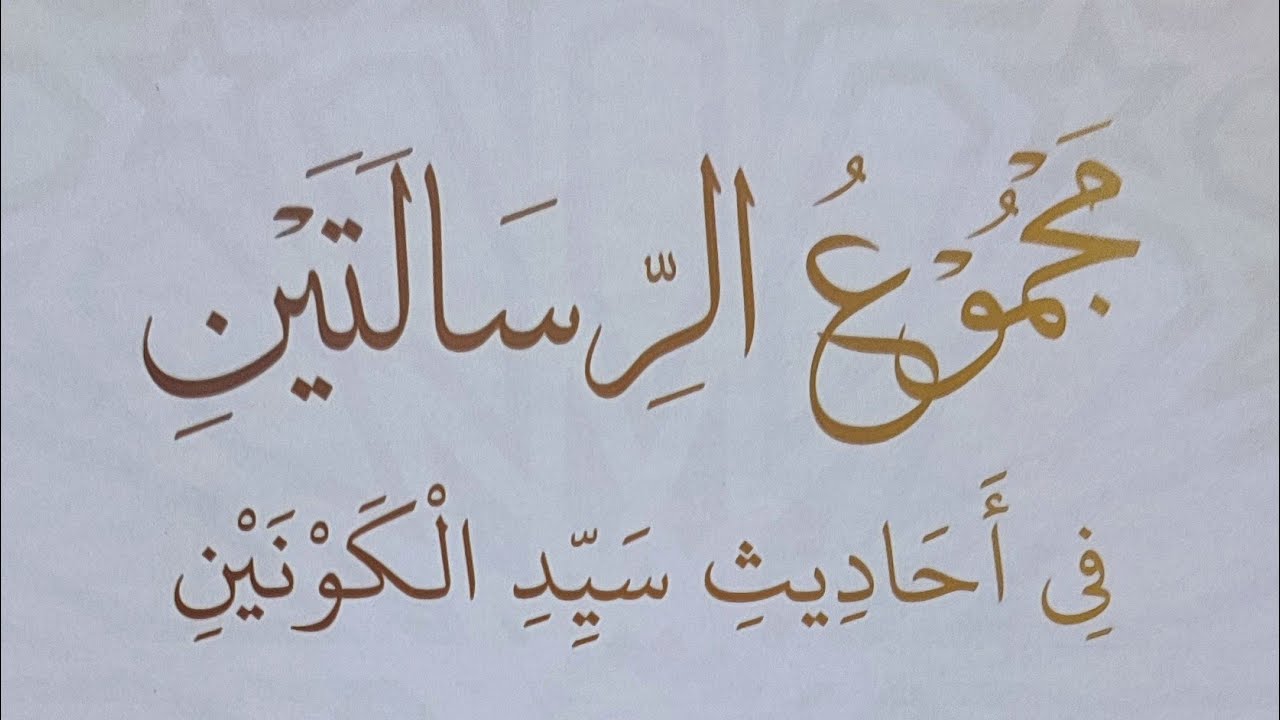 مَجْمُوْعُ الرِّسَالَتَيْنِ
فِي أَحَادِيثِ سَيِّدِ الْكَوْنَيْنِ